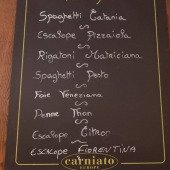 Spaghetti Catania
Escalope Pizzaiola
Rigatoni Matriciana
Spaghetti Pesto
Foie Veneziana
Penne Thon
Escalope Citron
ESCALOPE FIORENTINA
carniato
EUROPE